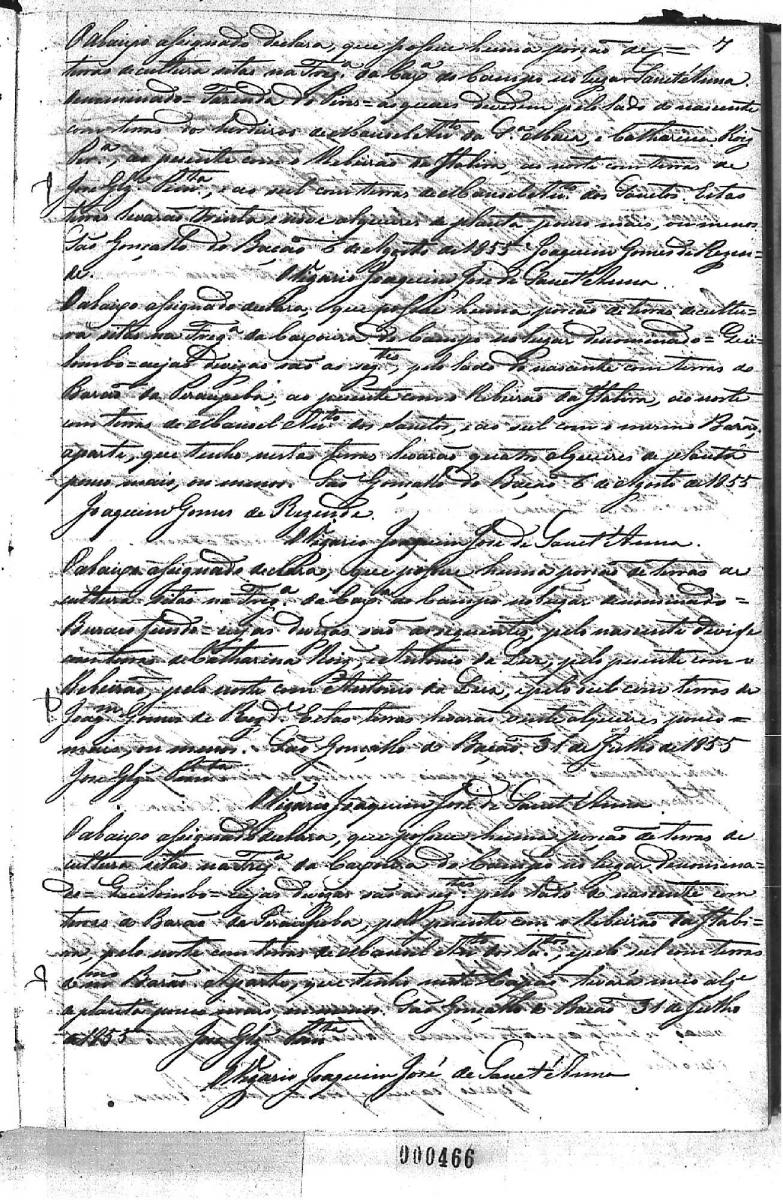 7
O abaixo assignado declara, que possue huma porção de =
terras de cultura sitas na Freg.ª da Cax.ª do Campo no lugar Sanct'Anna.
denominado = Fazenda do = as quaes devidem pelo lado do nascente
com terras dos herdeiros de Manoel da e Catharina Roiz
Per.ª, ao poente com o Ribeirão da Itabira, ao norte com terras de
José Glz' e ao sul com terras de Manoel dos Santos. Estas
terras levarão trinta e nove alqueires de planta pouco mais, ou menos
São Gonçallo do Bação 6 de Agosto de 1855. Joaquim Gomes de Rezen=
de. O Vigario Joaquim José de Sanct'Anna.
O abaixo assignado declara, que possue huma porção de terras de cultu=
ra sitas na Freg.ª da Caxoeira do Campo no lugar denominado = Qui=
lombo = cujas devizas são as seg.tes, pelo lado do nascente com terras do
Barão da Peraupeba, ao poente com o Ribeirão da Itabira, ao norte
com terras de Manoel dos Santos, e ao sul com o mesmo Barão,
aparte, que tenho nestas terras levarão quatro alqueires de planta
pouco mais, ou menos. São Gonçallo do Bação 6 de Agosto de 1855
Joaquim Gomes de Rezende.
O Vigario Joaquim José de Sanct'Anna.
O abaixo assignado declara, que possue huma porção de terras de
cultura sitas na Freg.ª da Cax.ª do Campo no lugar denominado =
Buraco fundo = cujas devizas são as seguintes, pelo nascente devide
com terras de Catharina Roiz, e Antonio da pelo poente com o
Ribeirão, pelo norte com Antonio da e pelo sul com terras de
Joaq.m Gomes de Rezd.e Estas terras levarão vinte alqueires pouco =
mais, ou menos. São Gonçallo do Bação 31 de Julho de 1855
José Glz'
O Vigario Joaquim José de Sanct'Anna.
O abaixo assignado declara, que possue huma porção de terras de
cultura sitas na Freg.ª da Caxoeira do Campo no lugar denomina=
do = Quilombo = cujas devizas são as seg.tes pelo lado do nascente com
terras do Barão da Peraupeba, pelo poente com o Ribeirão da Itabi=
ra, pelo norte com terras de Manoel dos e pelo sul com terras
do m.mo Barão. Aparte, que tenho neste Capão levará meio alq.e
de planta pouco mais, ou menos. São Gonçallo do Bação 31 de Julho
de 1855 José Glz'
O Vigario Joaquim José de Sanct'Anna
000466